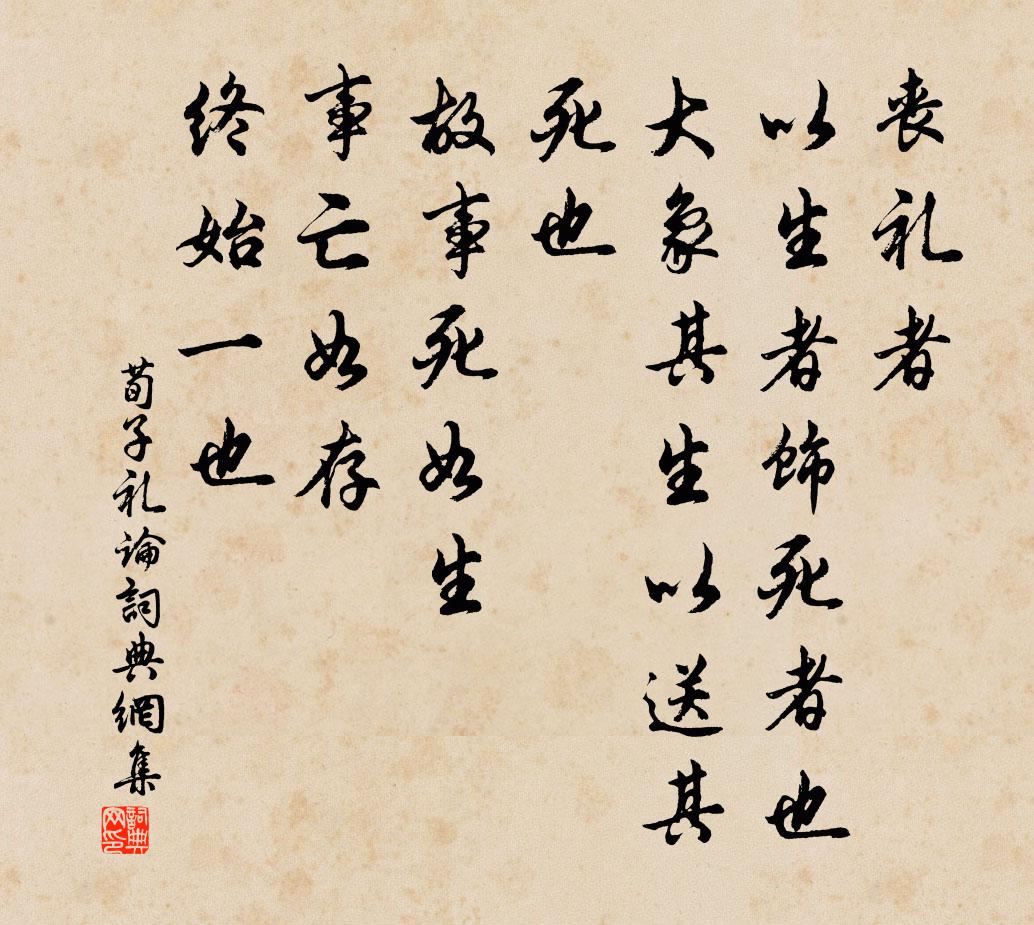 丧礼者
以生者饰死者也
大象其生以送其
死也
故事死如生
事亡如存
终始一也
荀子礼论詞典網集
詞典网印